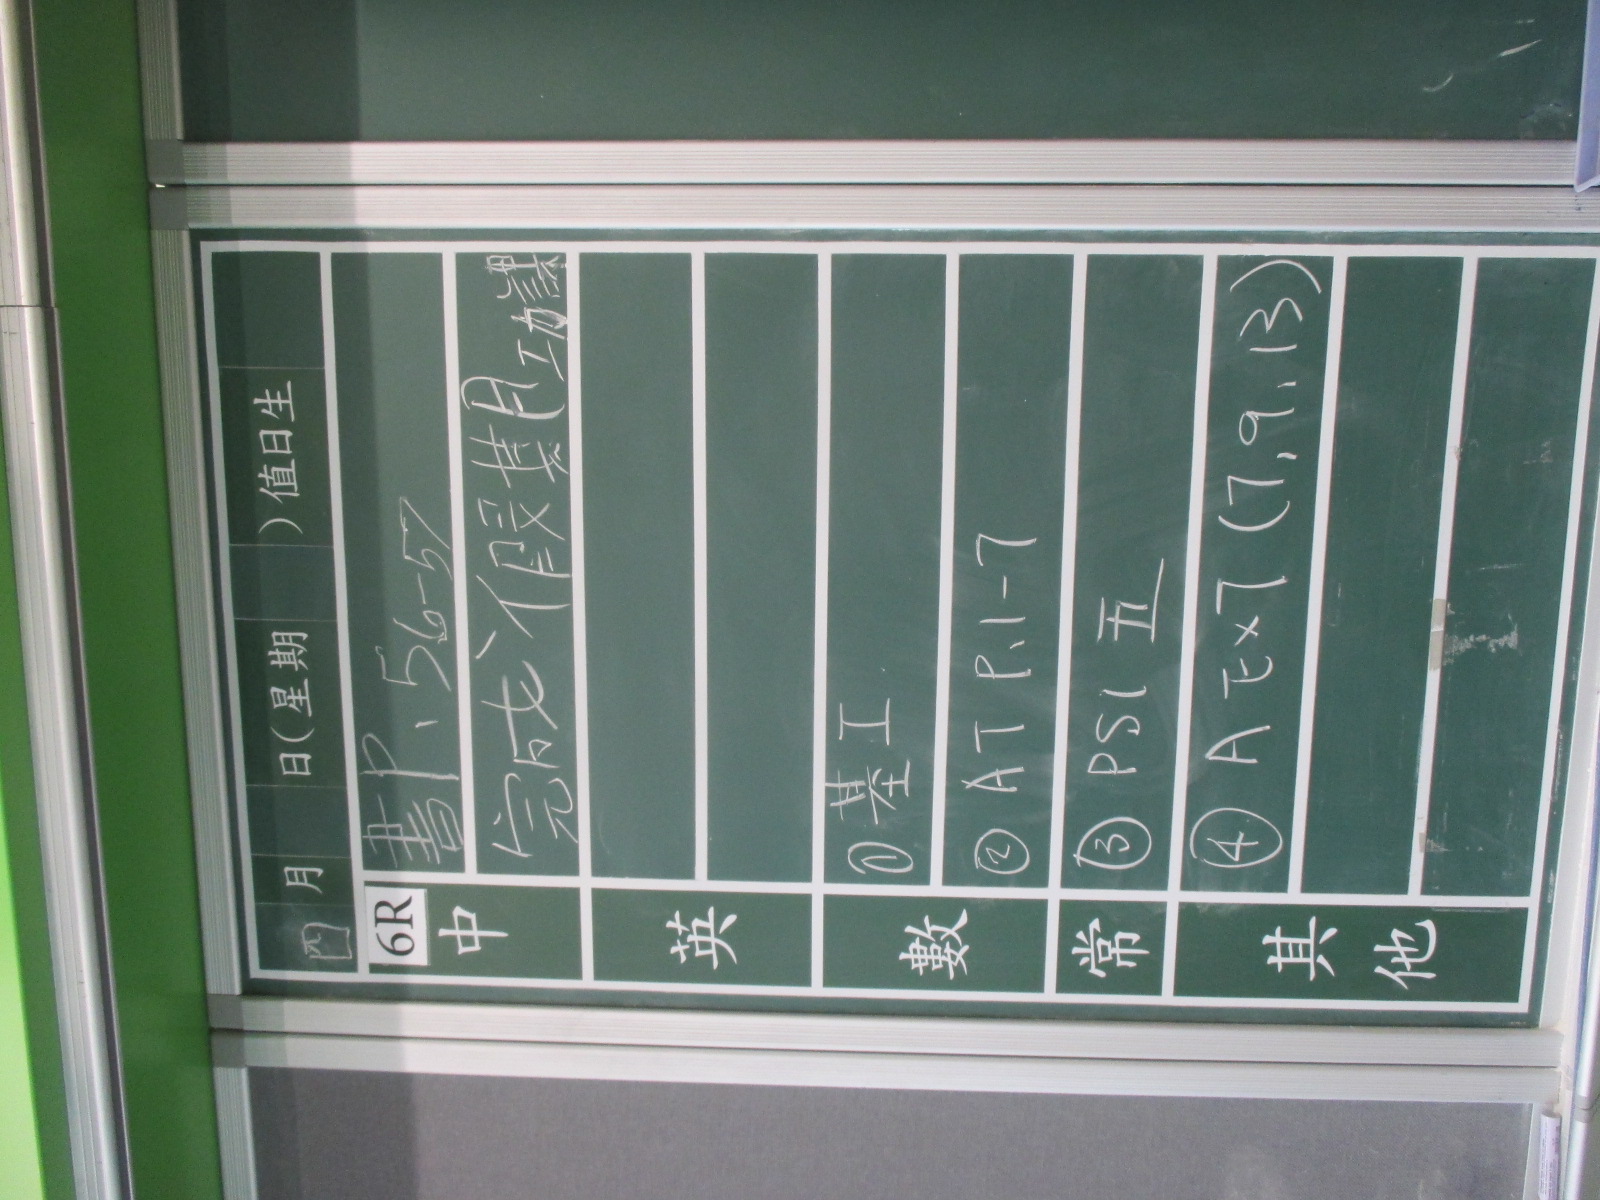 月 日(星期 )值日生
6R
中
書P.56-57
完成假期工功課
英
數
① 基工
② AT P.1-7
常
③ PS1 五
其他
④ A Ex7 (7,9,13)